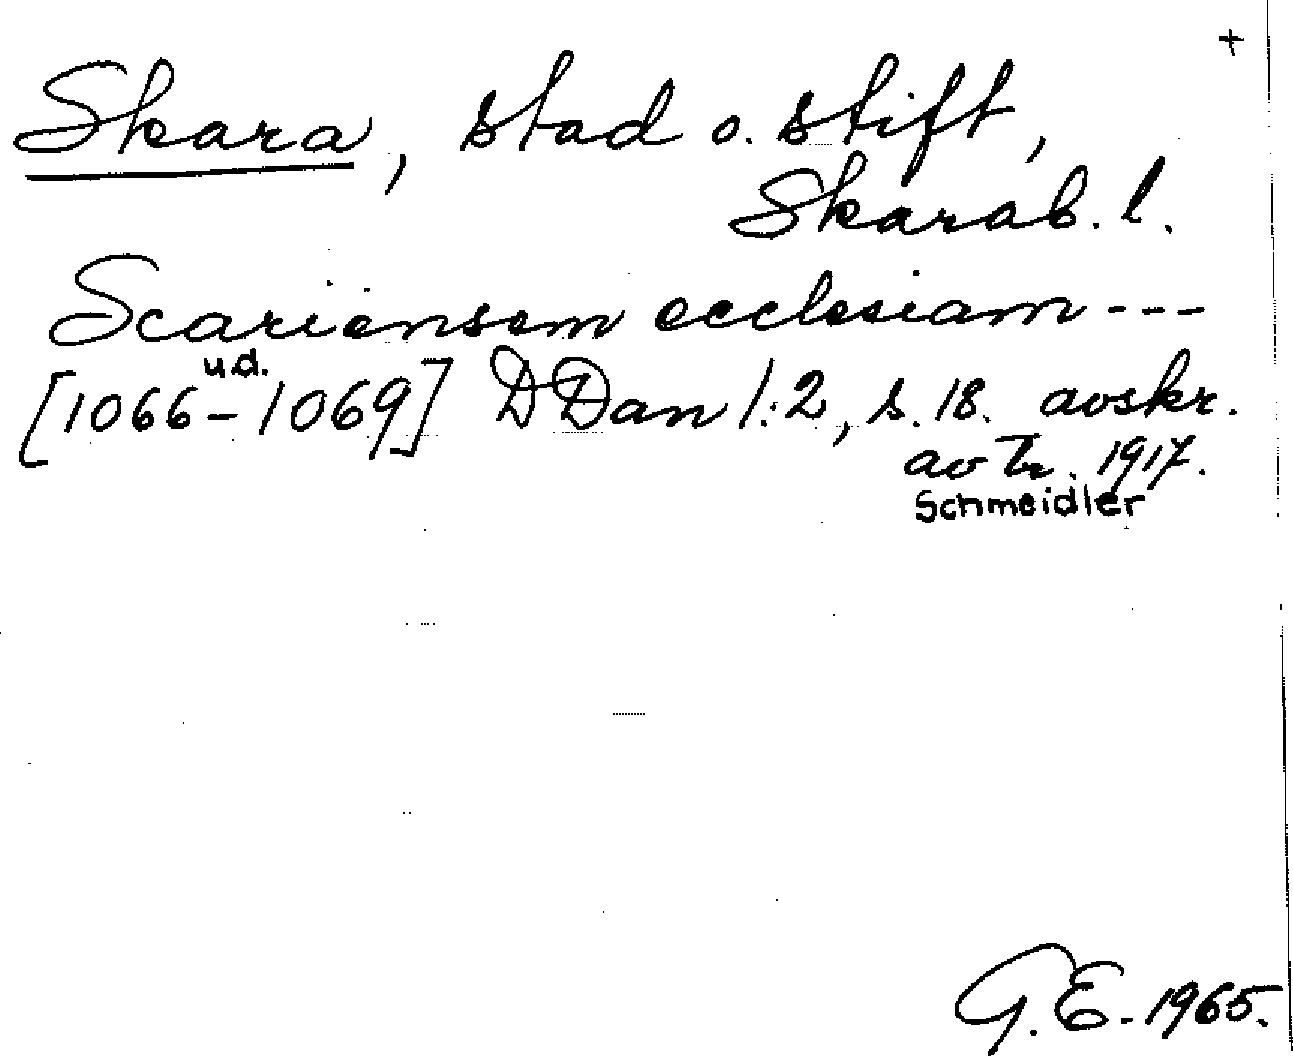 +
Skara, stad o. stift,
Skarab. l.
Scariensem ecclesiam ---
u.d.
[1066-1069] DDan 1:2, s. 18. avskr.
av Tr. 1917.
Schmeidler
G.E. 1965.